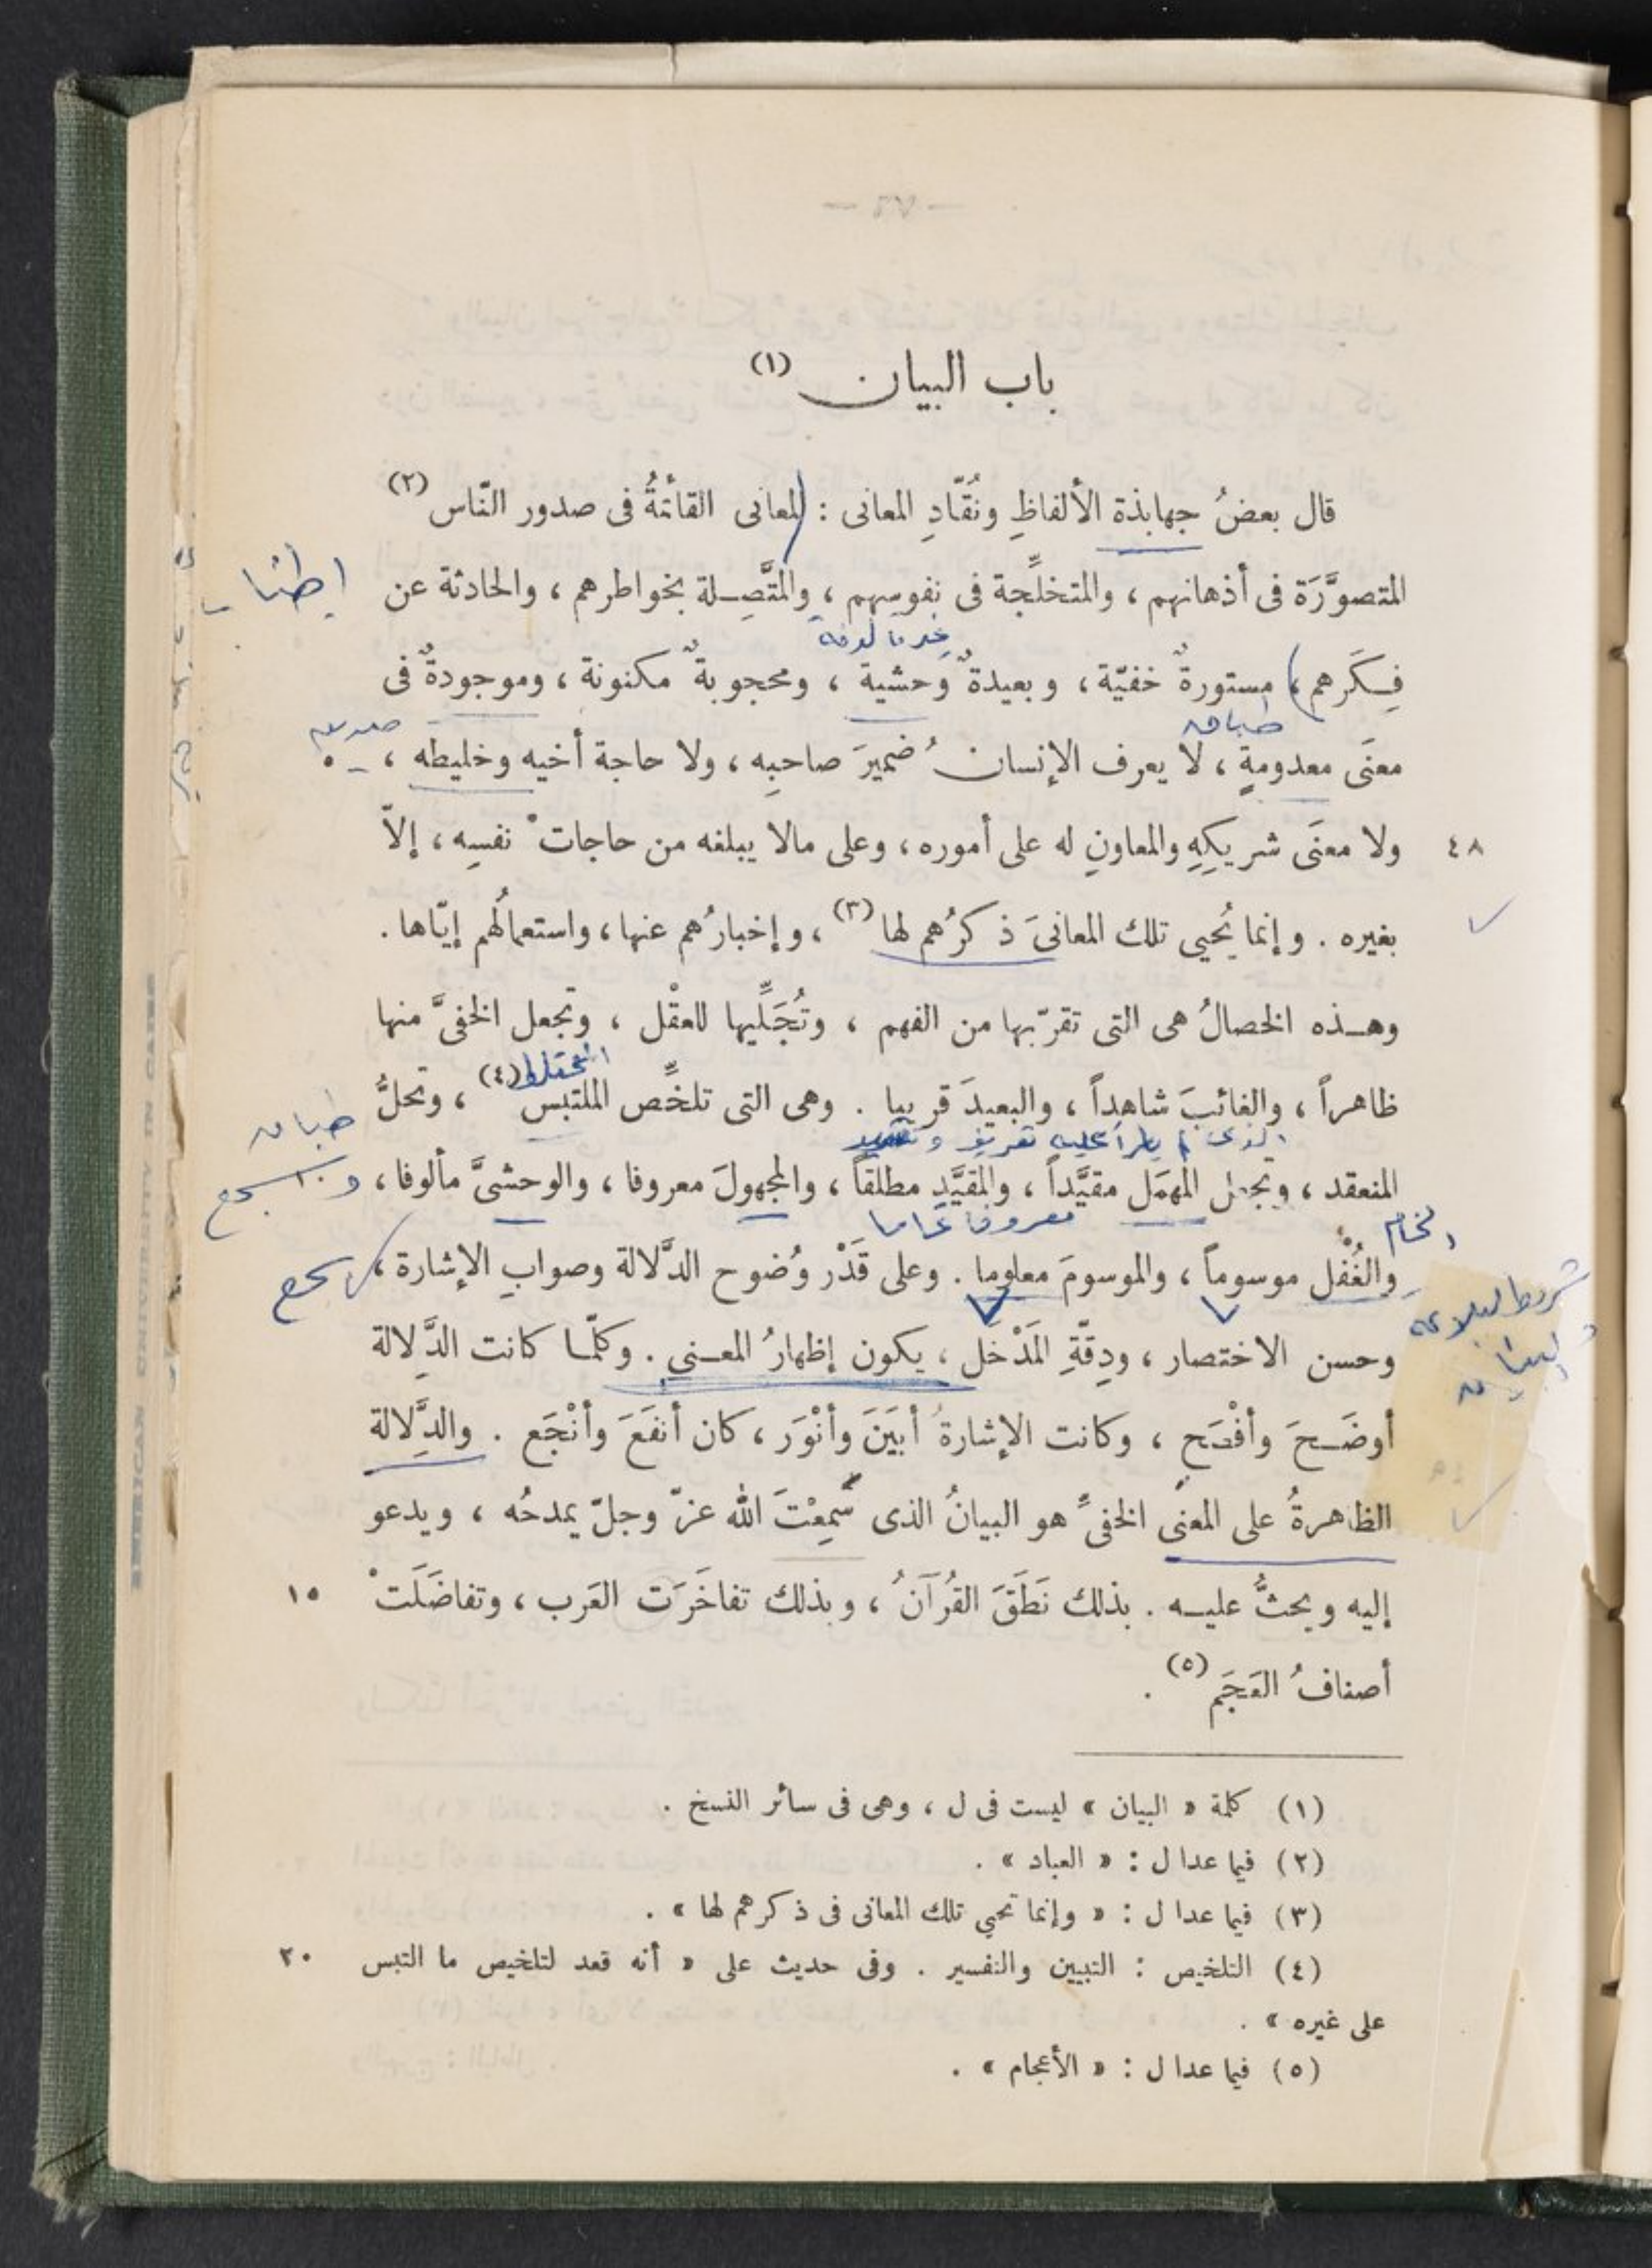 باب البيان (١)
قال بعضُ جهابذة الألفاظِ ونُقَّادِ المعانى : المعانى القائمةُ فى صدور النّاس (٢)
المتصوَّرَة فى أذهانهم ، والمتخلِّجة فى نفوسهم ، والمتَّصِلة بخواطرهم ، والحادثة عن
اطناب
فِكَرهم ، مستورةٌ خفيّة ، وبعيدةٌ وحشية ، ومحجوبةٌ مكنونة ، وموجودةٌ فى
طباق
معنَى معدومةٍ ، لا يعرف الإنسانُ ضميرَ صاحبِه ، ولا حاجة أخيه وخليطه ،
٤٨ ولا معنَى شريكِهِ والمعاونِ له على أموره ، وعلى مالا يبلغه من حاجاتْ نفسِه ، إلاّ
بغيره . وإنما يُحيى تلك المعانىَ ذكرُهم لها (٣) ، وإخبارُهم عنها ، واستعمالُهم إيّاها .
وهذه الخصالُ هى التى تقرّبها من الفهم ، وتُجَلِّيها للعقْل ، وتجعل الخفىَّ منها
ظاهراً ، والغائبَ شاهداً ، والبعيدَ قريبا . وهى التى تلخِّص الملتبس (٤) ، وتحلُّ
طباق
المنعقد ، وتجعل المهمَل مقيَّداً ، والمقيَّد مطلقاً ، والمجهولَ معروفا ، والوحشىَّ مألوفا ،
و سجع
معروفا عاما
والغُفْل موسوماً ، والموسومَ معلوما . وعلى قَدْر وُضوح الدَّلالة وصوابِ الإشارة ،
شروط البلاغة
وحسن الاختصار ، ودِقّةِ المَدْخل ، يكون إظهارُ المعنى . وكلّما كانت الدَّلالة
أوضَحَ وأفْصَح ، وكانت الإشارةُ أبيَنَ وأنْوَر ، كان أنفَعَ وأنْجَع . والدَّلالة
الظاهرةُ على المعنى الخفىِّ هو البيانُ الذى سَمِعْتَ الله عزّ وجلّ يمدحُه ، ويدعو
إليه ويحثُّ عليه . بذلك نَطَقَ القُرآنُ ، وبذلك تفاخَرَت العَرب ، وتفاضَلَتْ ١٥
أصنافُ العَجَم (٥) .
(١) كلمة « البيان » ليست فى ل ، وهى فى سائر النسخ .
(٢) فيما عدا ل : « العباد » .
(٣) فيما عدا ل : « وإنما تحيي تلك المعانى فى ذكرهم لها » .
(٤) التلخيص : التبيين والتفسير . وفى حديث على « أنه قعد لتلخيص ما التبس ٢٠
على غيره » .
(٥) فيما عدا ل : « الأعجام » .